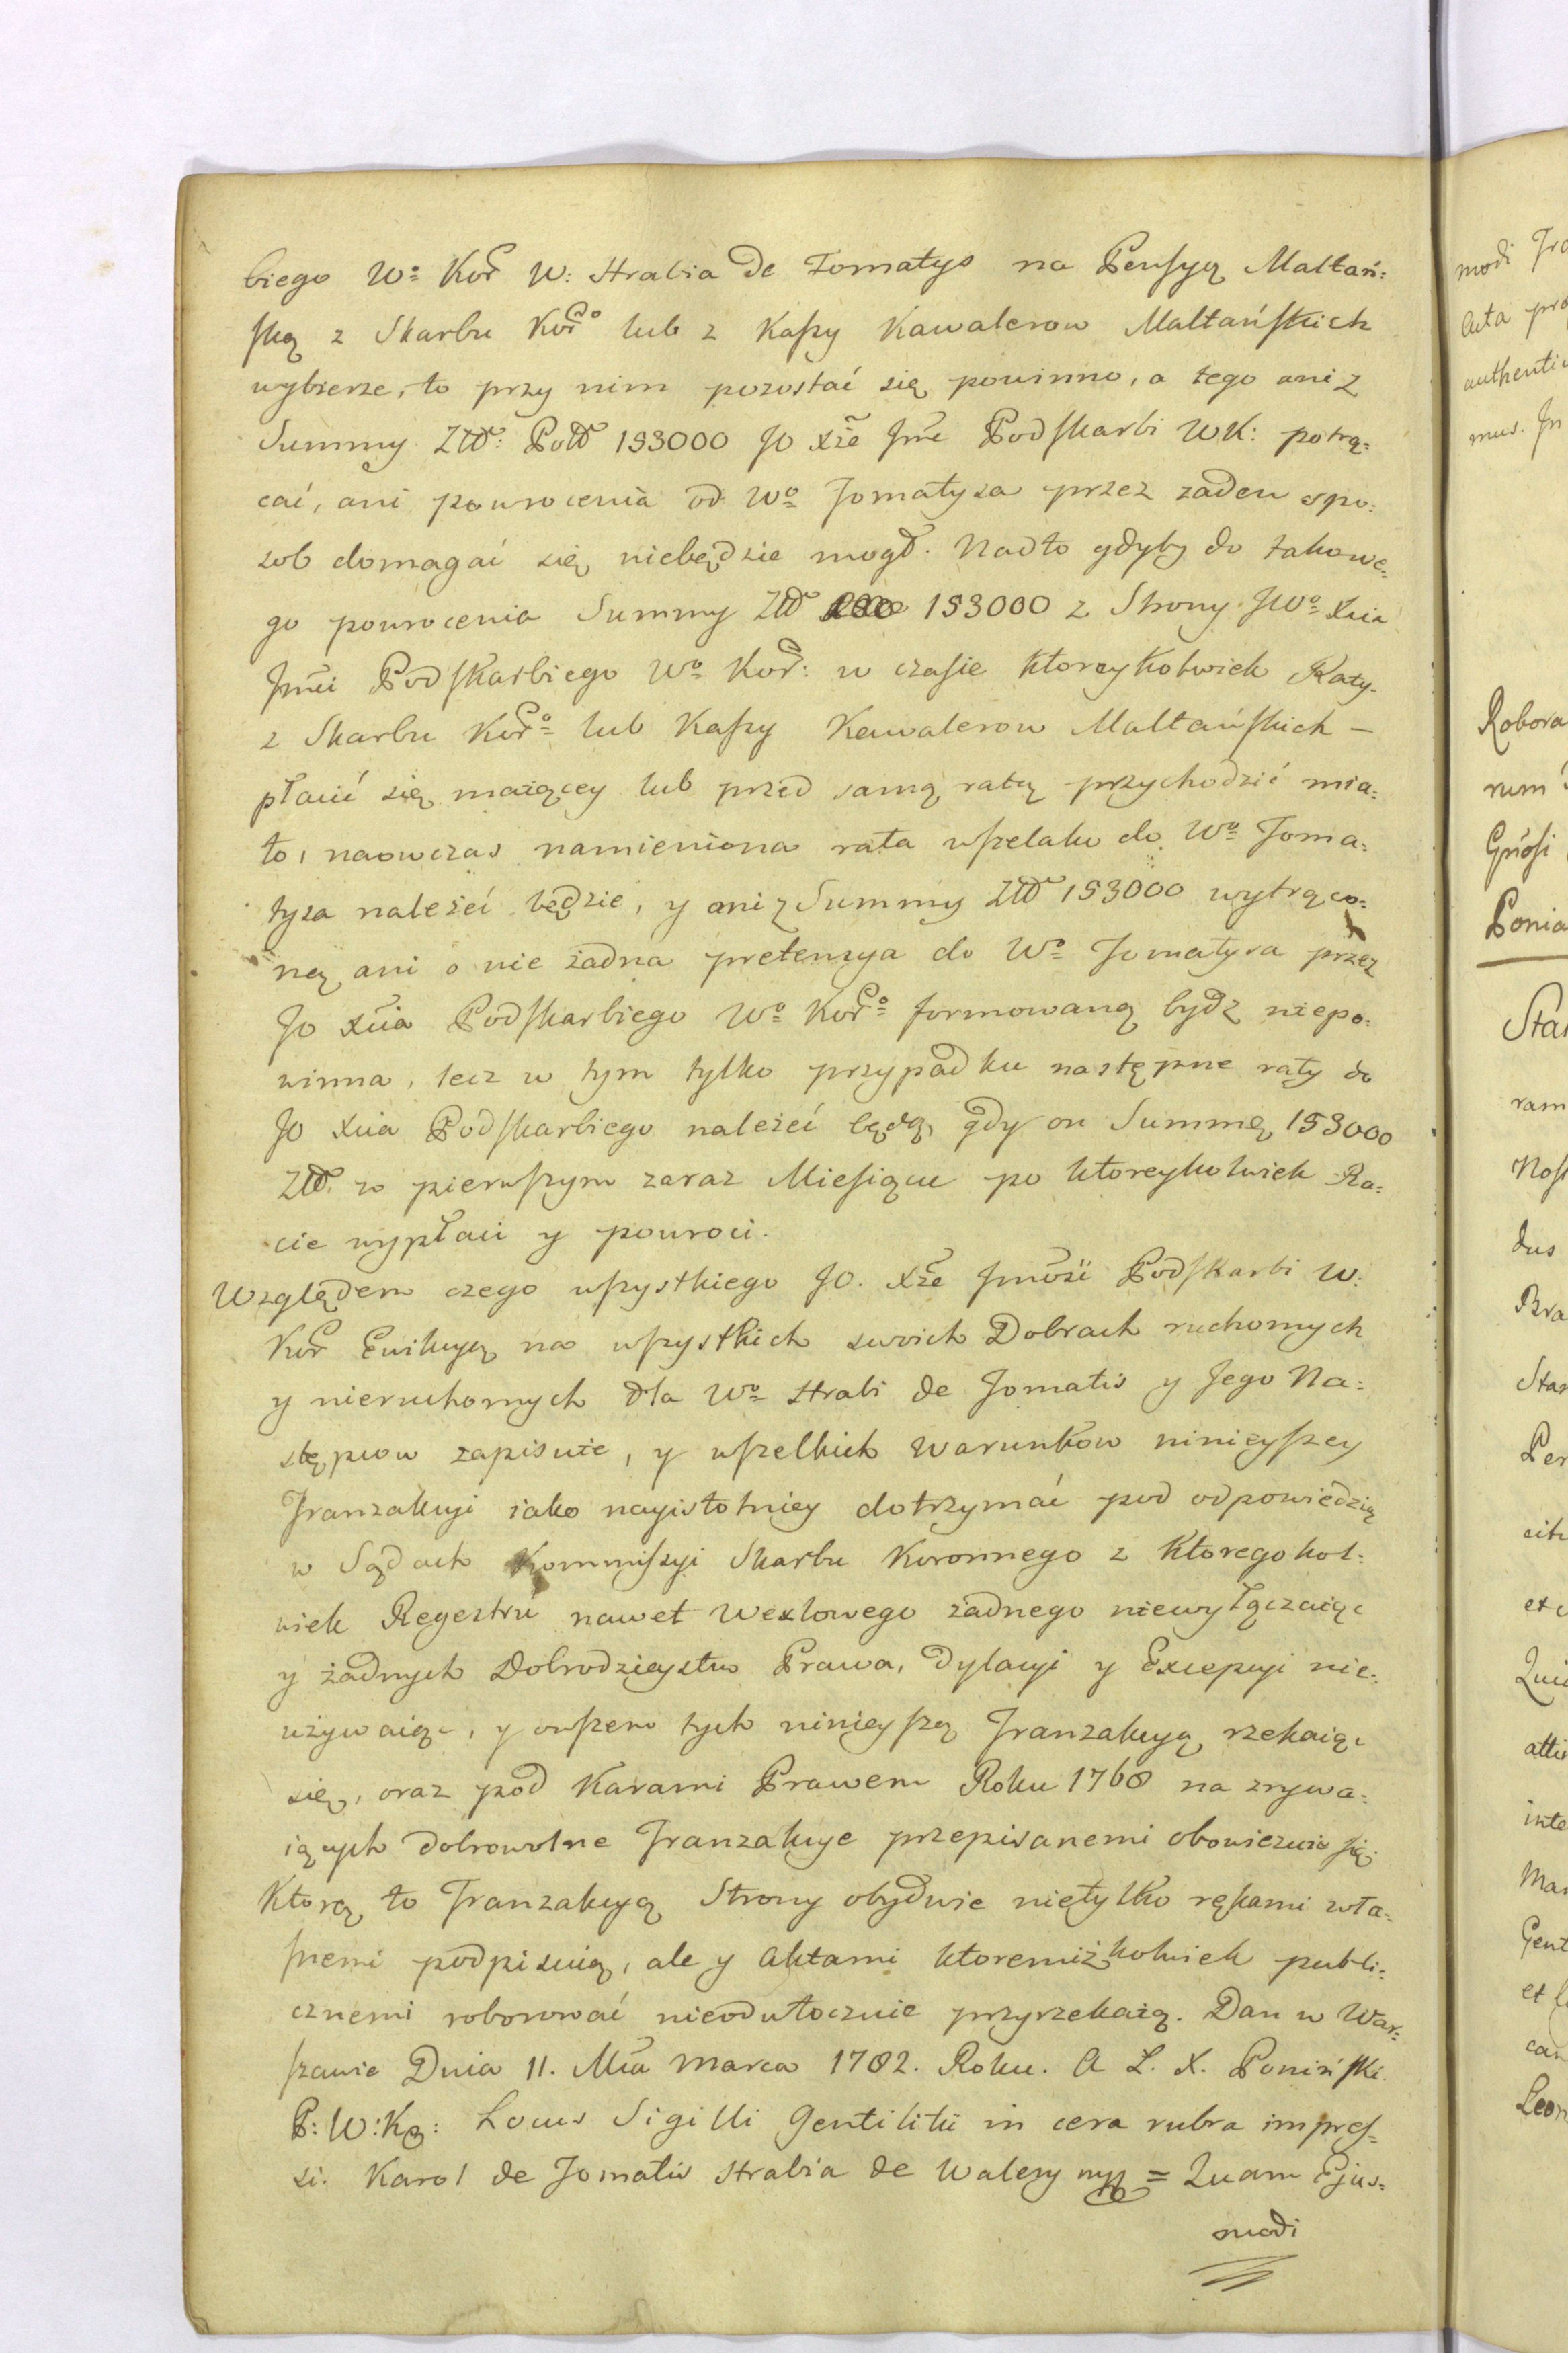 biego Wº Kor̃ W: Hrabia de Tomatys na Pensyą Maltań:
ską z Skarbu Korº lub z Kassy Kawalerow Maltańskich
wybierze, to przy nim pozostać się powinno, a tego ani z
Summy Złł: Poll 153000 JO Xże Jmć Podskarbi WK: potrą:
cać, ani powrocenia od Wº Tomatysa przez zaden spo:
sob domagać się niebędzie mogł. Nadto gdyby do takowe:
go powrocenia Summy Złł 153000 z Strony JWº Xcia
Jmći Podskarbiego Wº Kor̃: w czasie ktoreykolwiek Raty
z Skarbu Korº lub Kassy Kawalerow Maltańskich —
płacić się maiącey lub przed samą ratą przychodzić mia:
ło, naowczas namieniona rata wszelako do Wº Toma:
tysa należeć będzie, y ani z Summy Złł 153000 wytrąco:
ną ani o nie żadna pretensya do Wº Tomatysa przez
JO Xcia Podskarbiego Wº Korº formowaną bydz niepo:
winna, lecz w tym tylko przypadku następne raty do
JO Xcia Podskarbiego należeć będą, gdy on Summę 153000
Złł. w pierwszym zaraz Miesiącu po ktoreykolwiek Ra:
cie wypłaci y powroci.
Względem czego wszystkiego JO. Xże Jmość Podskarbi W:
Kor̃ Ewikcyą na wszystkich swoich Dobrach ruchomych
y nieruchomych dla Wº Hrabi de Tomatis y Jego Na:
stępcow zapisuie, y wszelkich warunkow ninieyszey
Tranzakcyi iako nayistotniey dotrzymać pod odpowiedzią
w Sądach Kommissyi Skarbu Koronnego z Ktoregokol:
wiek Regestru nawet Wexlowego żadnego niewyłączaiąc
y żadnych Dobrodzieystw Prawa, Dylacyi y Excepcyi nie:
używaiąc, y owszem tych ninieyszą Tranzakcyą rzekaiąc
się, oraz pod Karami Prawem Roku 1768 na zrywa:
iących dobrowolne Tranzakcye przepisanemi obowiezuie się.
Ktorą to Tranzakcyą Strony obydwie nietylko rękami wła:
snemi podpisuią, ale y Aktami ktoremiżkolwiek publi:
cznemi roborować nieodwłocznie przyrzekaią. Dan w War:
szawie Dnia 11. Mca Marca 1782. Roku. A L. X. Poniński
P: W: K: Locus Sigilli Gentilitii in cera rubra impres:
si. Karol de Tomatis Hrabia de Walery mp = Quam Ejus:
modi
modi
Acta
authentic
mus. In
Robora
rum
Gnosi
Ponia
Star
ram
Nost
dus
Bra
Star
Per
et
Qui
atti
inte
Mar
Gent
et
can
Leon